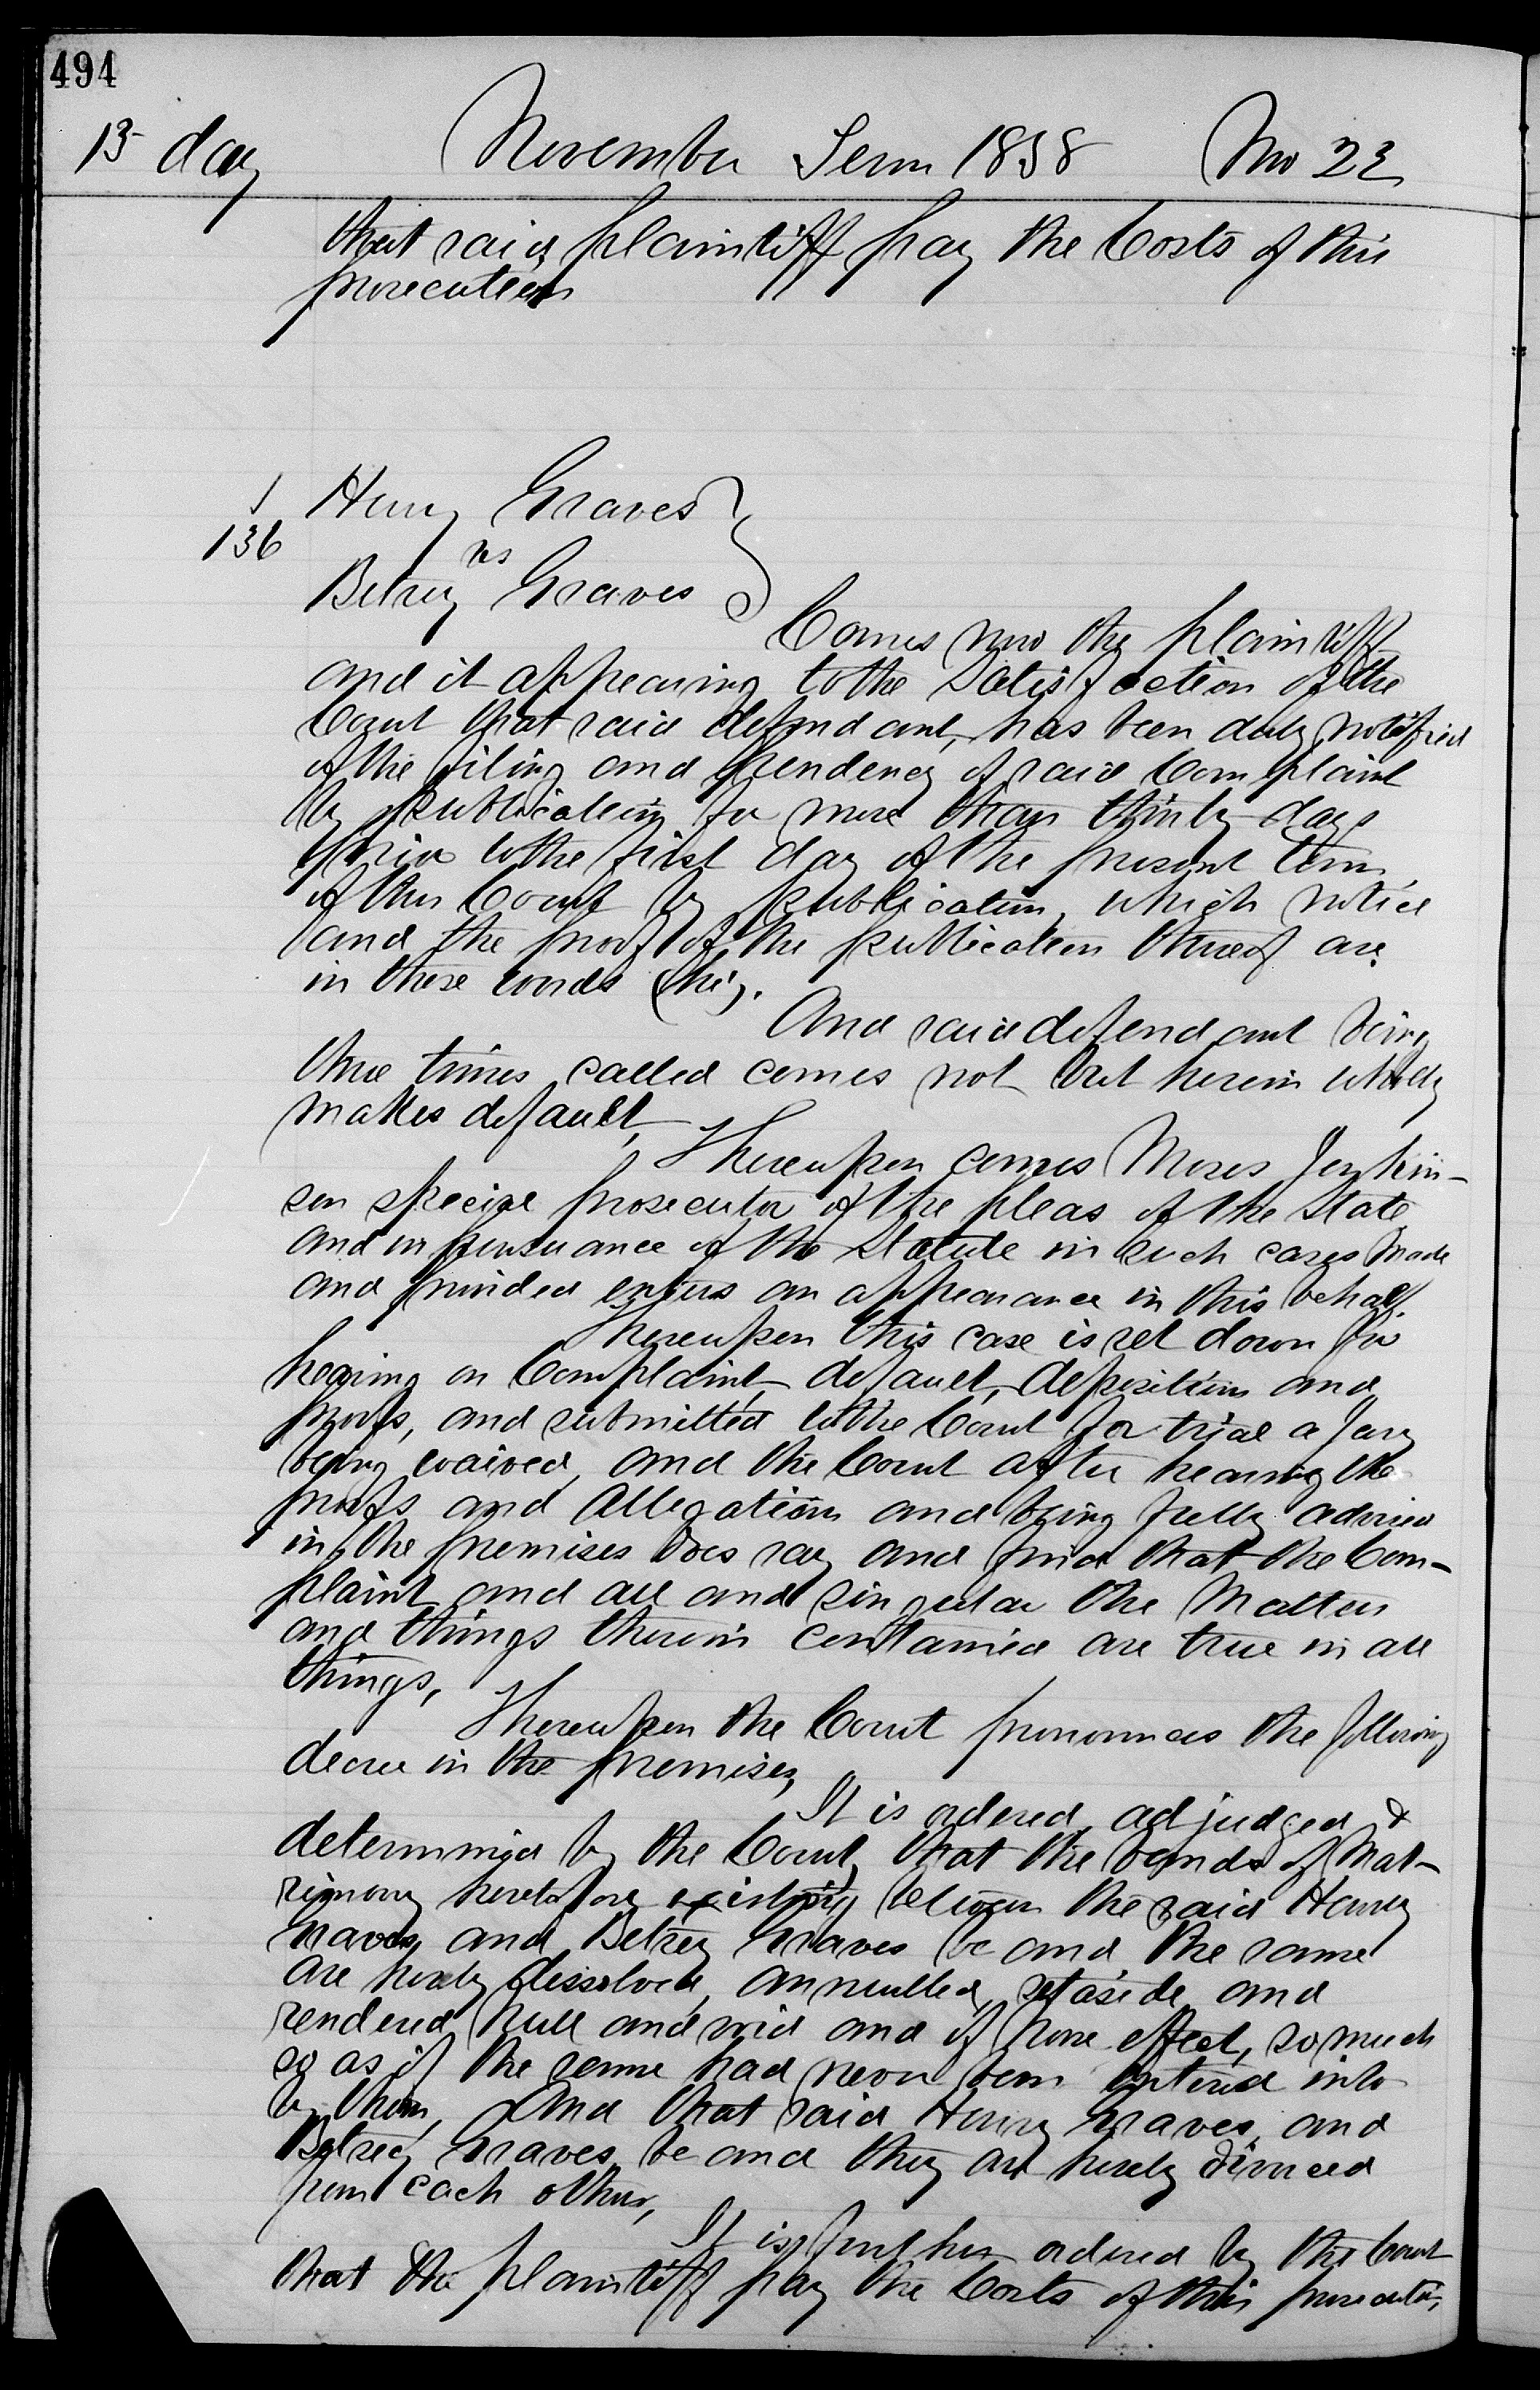 494
13 day November Term 1858 Nov 23
that said plaintiff pay the Costs of this
prosecution
1 Henry Graves
136 vs
Betsey Graves
Comes now the plaintiff
and it appearing to the Satisfaction of the
Court that said defendant, has been duly notified
of the filing and pendency of said Complaint
by publication for more than thirty days
prior to the first day of the present term
of this Court by publication, which notice
and the proof of the publication thereof are
in these words (h.i.)
And said defendant being
three times called comes not but herein wholly
makes default,
Thereupon comes Moses Jenkin-
son special prosecutor of the pleas of the State
and in pursuance of the Statute in such cases made
and provided enters an appearance in this behalf.
Thereupon this case is set down for
hearing on Complaint, default, depositions and
proofs, and submitted to the Court for trial a Jury
being waived, and the Court after hearing the
proofs and Allegations and being fully advised
in the premises does say and find that the Com-
plaint and all and singular the Matters
and things therein contained are true in all
things,
Thereupon the Court pronounces the following
decree in the premises,
It is ordered, adjudged &
determined by the Court, that the bonds of Mat-
rimony heretofore existing between the said Henry
Graves, and Betsey Graves be and the same
are hereby dissolved, annulled, set aside and
rendered null and void and of none effect, so much
so as if the same had never been entered into
by them, And that said Henry Graves, and
Betsey Graves be and they are hereby divorced
from each other,
It is further ordered by the Court
that the plaintiff pay the Costs of this prosecution,